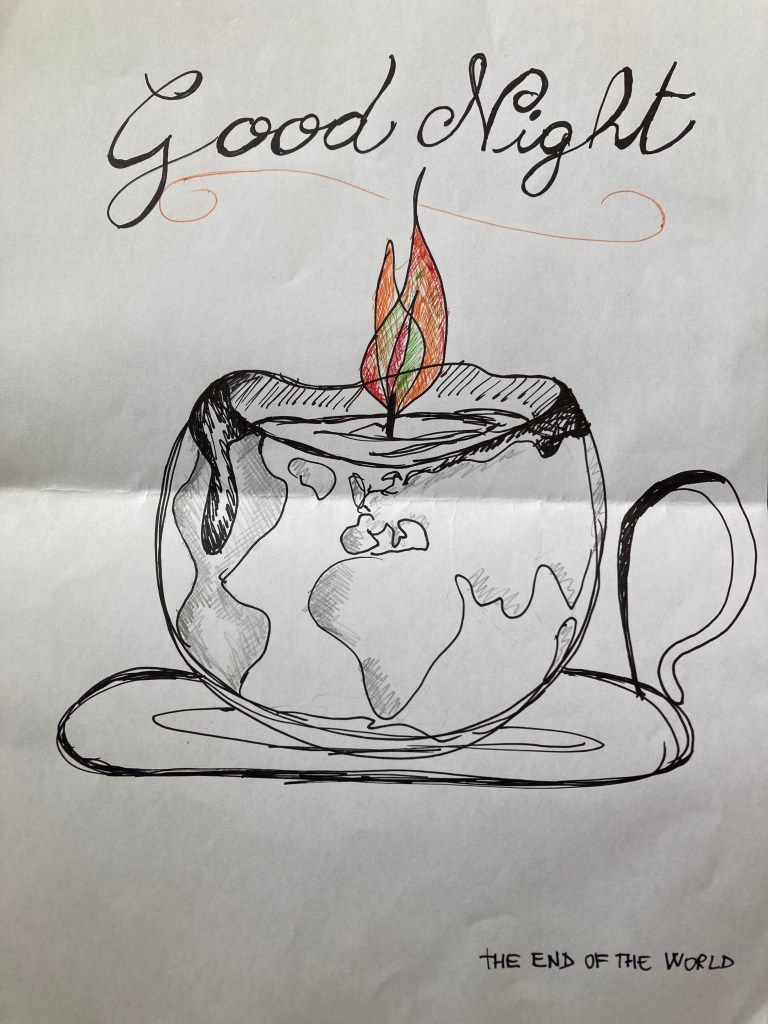 Good Night
THE END OF THE WORLD